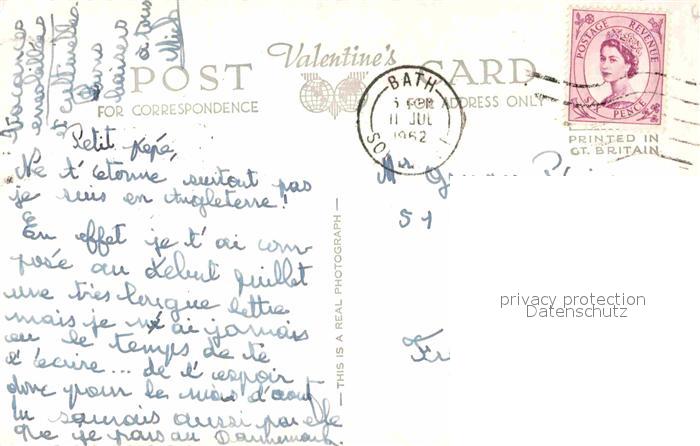 Vacances
ensoleillées
et culturelles.
Bons
baisers
à tous
Mich
Valentine's
POST CARD
FOR CORRESPONDENCE
ADDRESS ONLY
BATH
11 JUL
1962
SO
POSTAGE REVENUE
PENCE
PRINTED IN
GT. BRITAIN
Petit pépé,
Ne t'étonne surtout pas
je suis en Angleterre!
En effet je t'ai com-
posé au début juillet
une très longue lettre
mais je n'ai jamais
eu le temps de te
l'écrire... de l'espoir
donc pour le mois d'août
tu saurais aussi par elle
que je pars au Danemark
— THIS IS A REAL PHOTOGRAPH —
Mr
51
Fr
privacy protection
Datenschutz